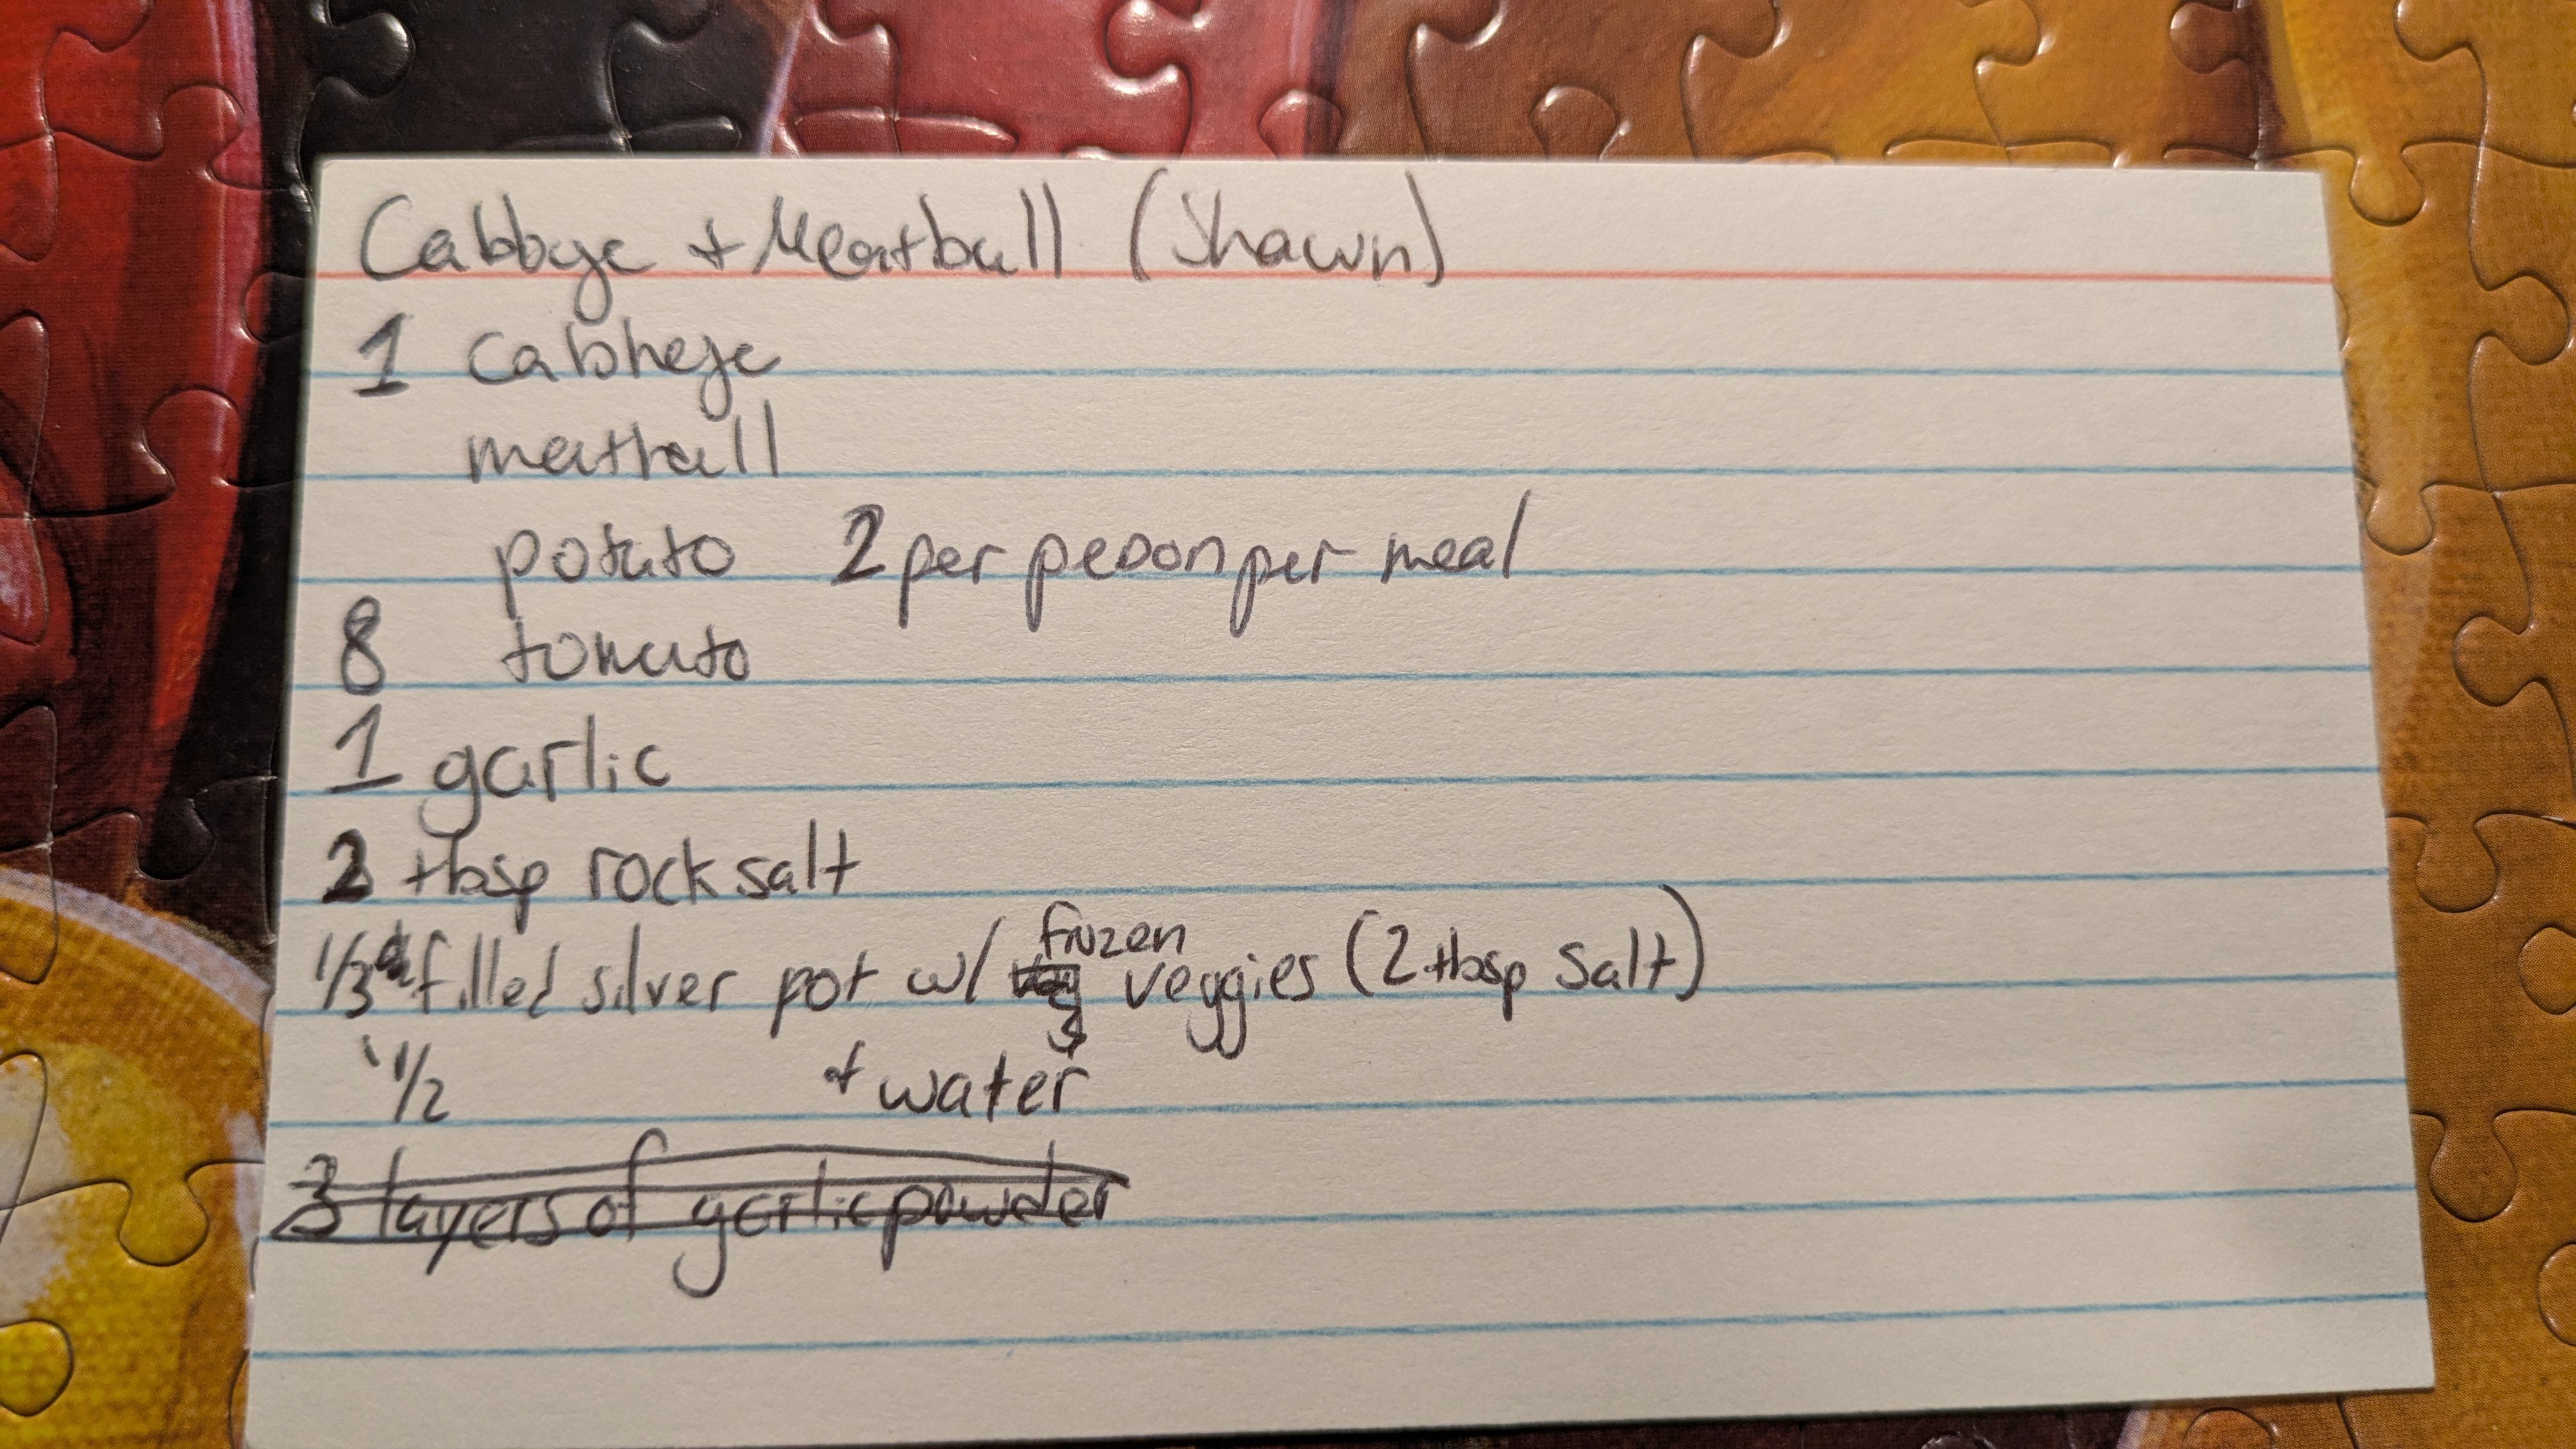 Cabbge + Meatball (Shawn)
1 cabbege
meatball
potato 2 per peson per meal
8 tomato
1 garlic
2 tbsp rock salt
1/3 filled silver pot w/ frozen veggies (2 tbsp salt)
1/2 + water
3 layers of garlic powder